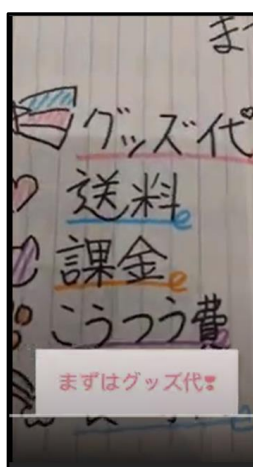 ま
グッズ代
送料
課金
こうつう費
まずはグッズ代❣